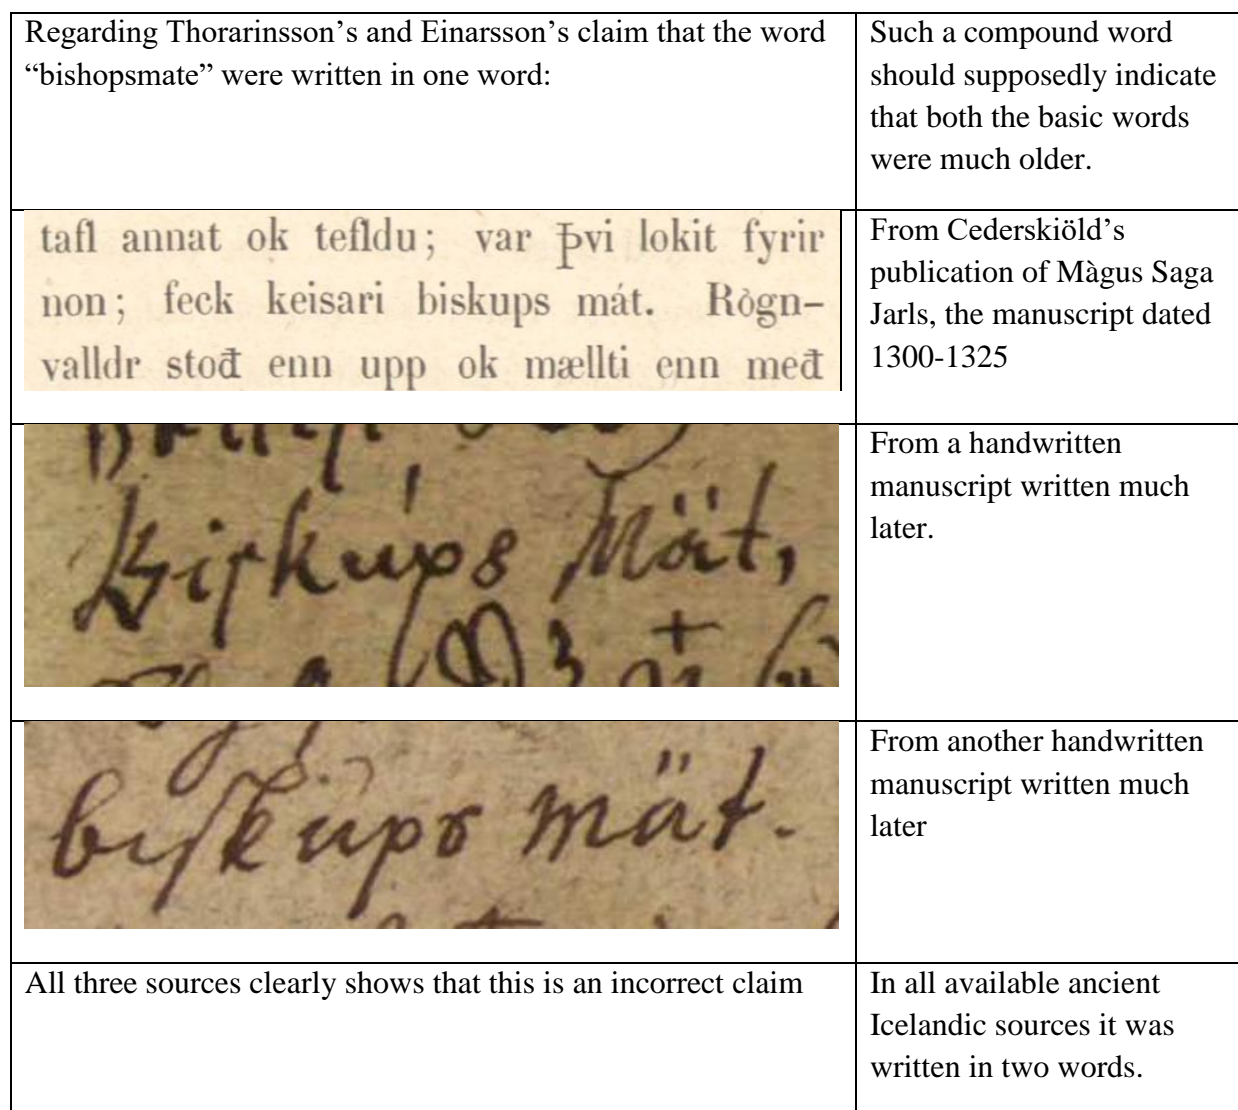 Regarding Thorarinsson’s and Einarsson’s claim that the word
“bishopsmate” were written in one word:
Such a compound word
should supposedly indicate
that both the basic words
were much older.
tafl annat ok tefldu; var Þvi lokit fyrir
non; feck keisari biskups mát. Rògn–
valldr stođ enn upp ok mællti enn međ
From Cederskiöld’s
publication of Màgus Saga
Jarls, the manuscript dated
1300-1325
Biſkúps Mät,
From a handwritten
manuscript written much
later.
biſkups mät.
From another handwritten
manuscript written much
later
All three sources clearly shows that this is an incorrect claim
In all available ancient
Icelandic sources it was
written in two words.